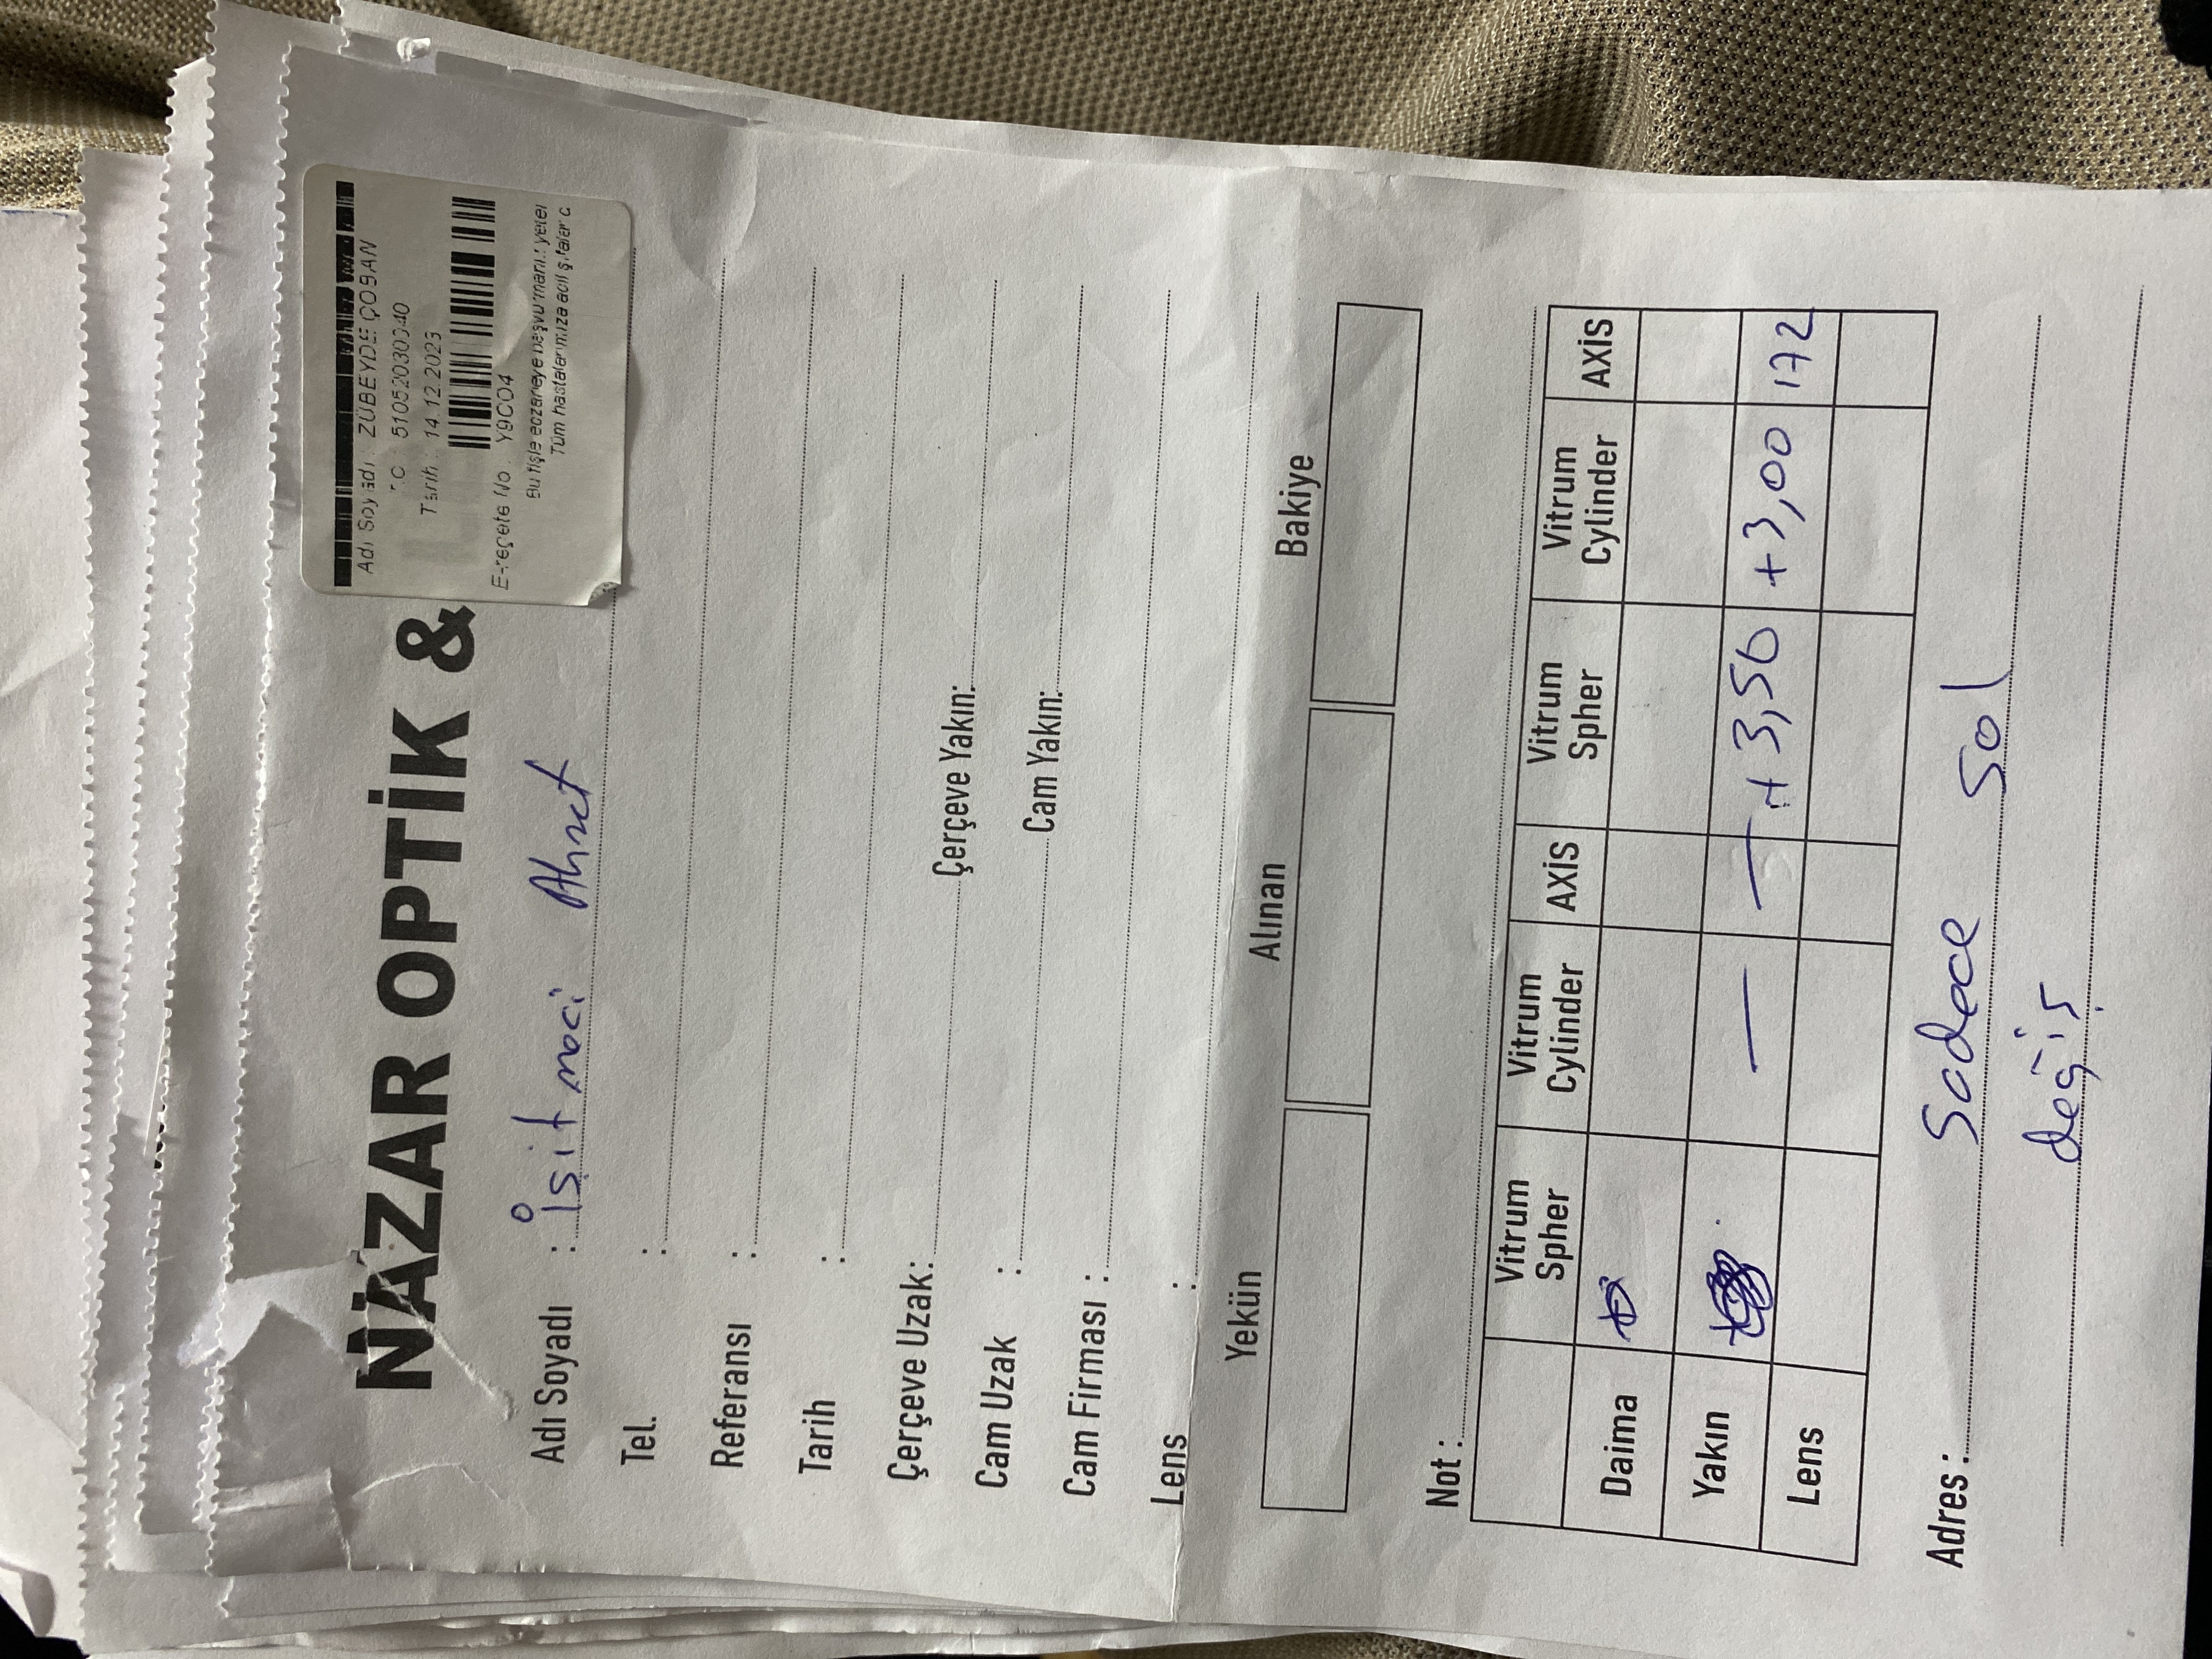 NAZAR OPTİK &
Adı Soyadı : ZÜBEYDE ÇOBAN
T.C. 51052030340
Tarih : 14.12.2023
E-reçete No : Y9CO4
Bu fişle eczaneye başvurmanız yeter
Tüm hastalarımıza acil şifalar d
Adı Soyadı : İşitmeci Ahmet
Tel. :
Referansı :
Tarih :
Çerçeve Uzak: Çerçeve Yakın:
Cam Uzak : Cam Yakın:
Cam Firması :
Lens :
Yekün Alınan Bakiye
Not :
Vitrum Spher Vitrum Cylinder AXİS Vitrum Spher Vitrum Cylinder AXİS
Daima
Yakın — — +3,50 +3,00 172
Lens
Adres : Sadece Sol
değiş